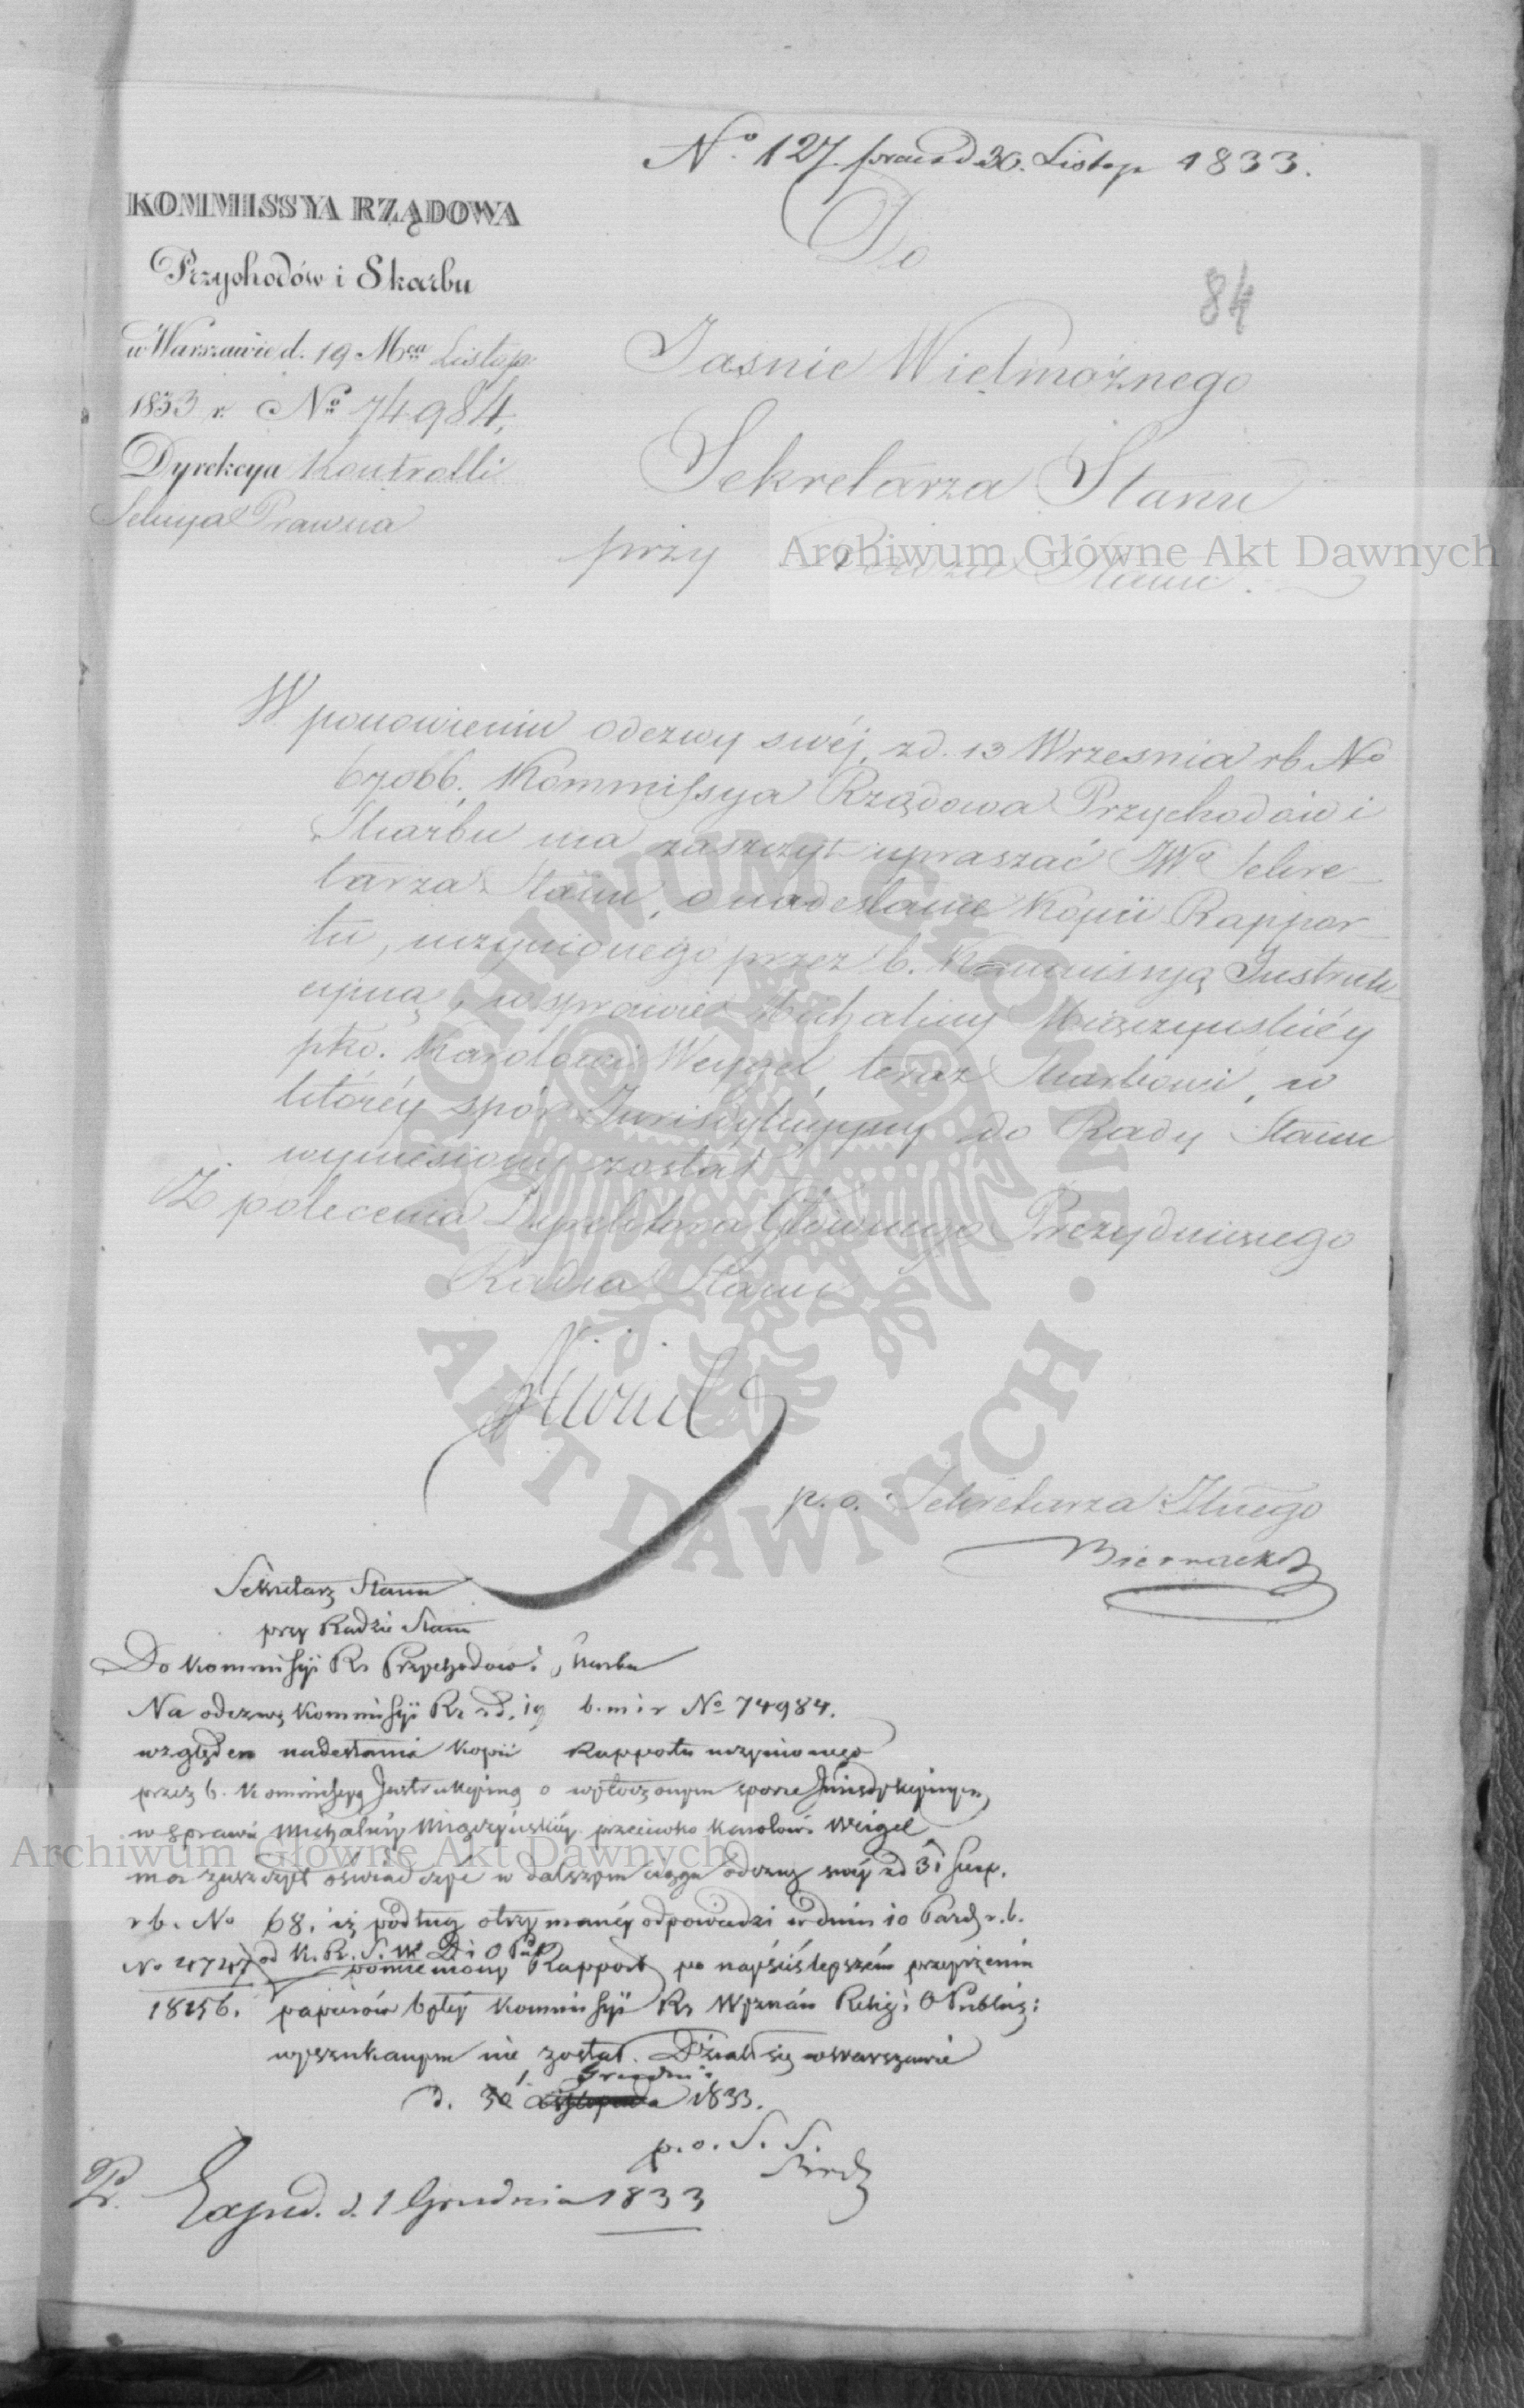 No. 127. praes d 30. Listop 1833.
KOMMISSYA RZĄDOWA
Przychodów i Skarbu
w Warszawie d. 19 Mca Listop:
1833 r. No 74984.
Dyrekcya Kontrolli
Sekcya Prawna
Do
84
Jasnie Wielmożnego
Sekretarza Stanu
przy Radzie Stanu.
W ponowieniu odezwy swéj, z d. 13 Wrzesnia rb No
67066. Kommissya Rządowa Przychodów i
Skarbu ma zaszczyt upraszać JWo Sekre-
tarza Stanu, o nadesłanie Kopii Rappor-
tu, uczynionego przez b. Kommissyą Instruk-
cyjną, w sprawie Michaliny Miączyńskiéy
pko. Karolowi Weygel, teraz Skarbowi, w
któréy spór Jurisdykcyjny do Rady Stanu
wyniesiony został
Z polecenia Dyrektora Głównego Prezyduiącego
Radca Stanu
p. o. Sekretarza Jlnego
Biernacki
Sekretarz Stanu
przy Radzie Stanu
Do Kommissyi Rz Przychodów i Skarbu
Na odezwę Kommissyi Rz z d. 19 b. m i r No 74984.
względem nadesłania Kopii Rapportu uczynionego
przez b. Kommissyą Instrukcyjną o wytoczonym sporze Jurisdykcyjnym
w sprawie Michaliny Miączyńskiéy przeciwko Karolowi Weigel
ma zaszczyt oświadczyć w dalszym ciągu odezwy swéy z d 31 Sierp.
r b. No 68. iż podług otrzymanéy odpowiedzi w dniu 10 Paźdz r. b.
od K. R. S. W. D. i O P
pomieniony Rapport po nayściśleyszém przeyrzeniu
18156. papierów byłéy Kommissyi Rz Wyznań Relig i O Publicz:
wyszukanym nie został. Działo się w Warszawie
d. 30 1. Listopada Grudnia 1833.
p. o. S. S.
Exped. d. 1 Grudnia 1833
Archiwum Główne Akt Dawnych
Archiwum Główne Akt Dawnych
ARCHIWUM GŁÓWNE · AKT DAWNYCH ·